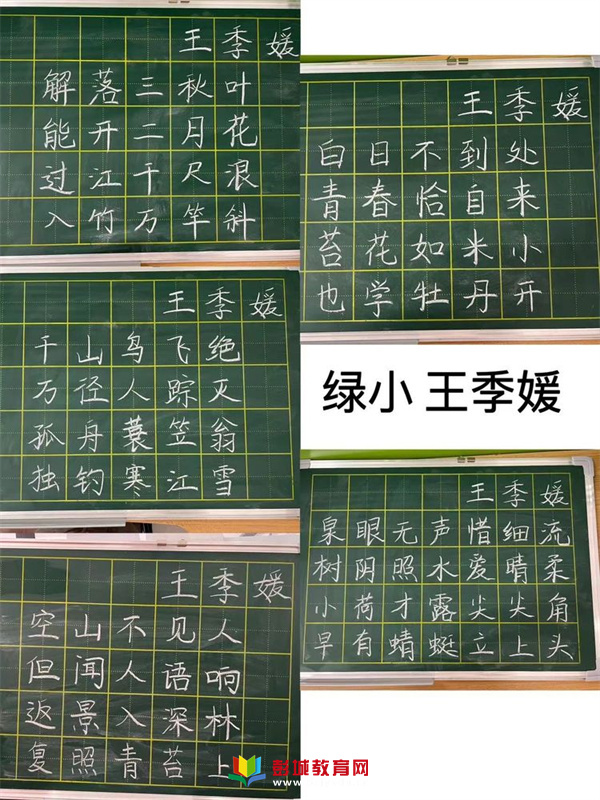 王季媛
解落三秋叶
能开二月花
过江千尺浪
入竹万竿斜
王季媛
千山鸟飞绝
万径人踪灭
孤舟蓑笠翁
独钓寒江雪
王季媛
空山不见人
但闻人语响
返景入深林
复照青苔上
王季媛
白日不到处
青春恰自来
苔花如米小
也学牡丹开
绿小 王季媛
王季媛
泉眼无声惜细流
树阴照水爱晴柔
小荷才露尖尖角
早有蜻蜓立上头
彭城教育网